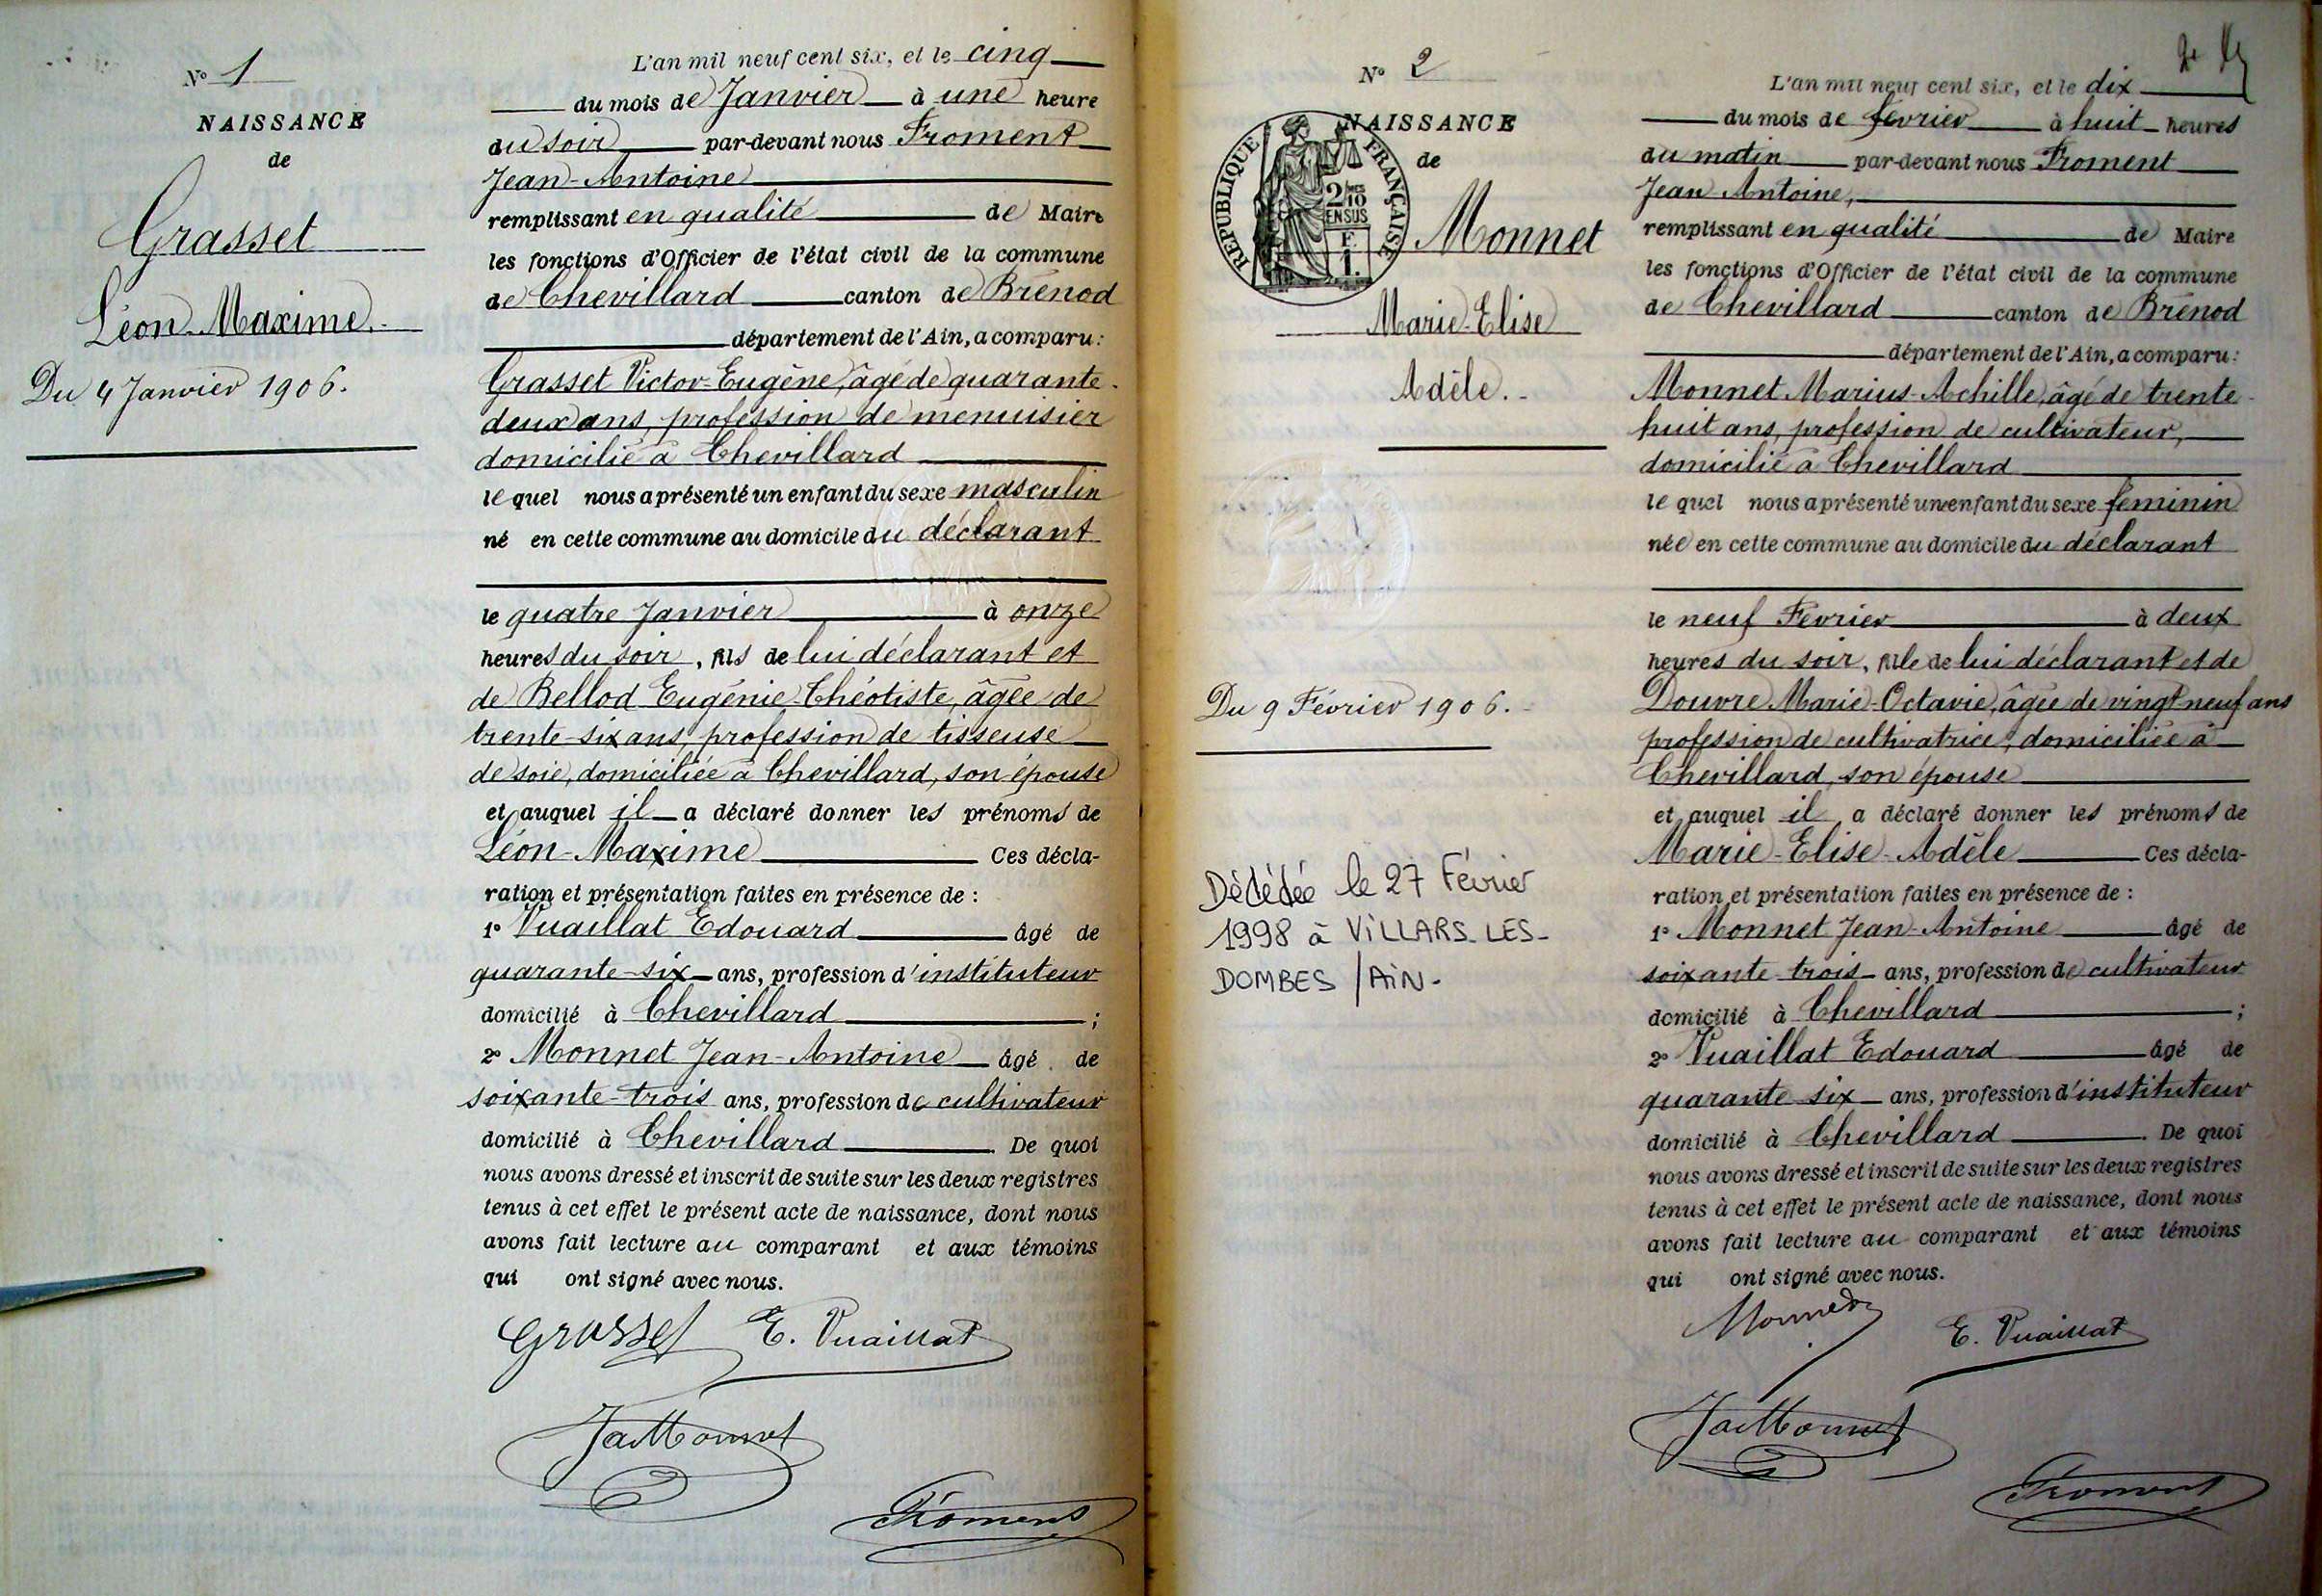 N° 1
NAISSANCE
de
Grasset
Léon-Maxime.
Du 4 Janvier 1906.
L'an mil neuf cent six, et le cinq
du mois de Janvier à une heure
du soir par-devant nous Froment
Jean-Antoine
remplissant en qualité de Maire
les fonctions d'Officier de l'état civil de la commune
de Chevillard canton de Brénod
département de l'Ain, a comparu:
Grasset Victor-Eugène, âgé de quarante-
deux ans, profession de menuisier
domicilié à Chevillard
lequel nous a présenté un enfant du sexe masculin
né en cette commune au domicile du déclarant
le quatre Janvier à onze
heures du soir, fils de lui déclarant et
de Bellod Eugénie-Théotiste, âgée de
trente-six ans, profession de tisseuse
de soie, domiciliée à Chevillard, son épouse
et auquel il a déclaré donner les prénoms de
Léon-Maxime Ces décla-
ration et présentation faites en présence de :
1° Vuaillat Edouard âgé de
quarante-six ans, profession d'instituteur
domicilié à Chevillard ;
2° Monnet Jean-Antoine âgé de
soixante-trois ans, profession de cultivateur
domicilié à Chevillard. De quoi
nous avons dressé et inscrit de suite sur les deux registres
tenus à cet effet le présent acte de naissance, dont nous
avons fait lecture au comparant et aux témoins
qui ont signé avec nous.
Grasset E. Vuaillat
JaMonnet
Froment
N° 2
NAISSANCE
de
RÉPUBLIQUE FRANÇAISE
2/10
EN SUS
F.
1.
Monnet
Marie-Elise
Adèle.
Du 9 Février 1906.
Décédée le 27 Février
1998 à VILLARS-LES-
DOMBES / AIN.
L'an mil neuf cent six, et le dix
du mois de février à huit heures
du matin par-devant nous Froment
Jean-Antoine,
remplissant en qualité de Maire
les fonctions d'Officier de l'état civil de la commune
de Chevillard canton de Brénod
département de l'Ain, a comparu:
Monnet Marius-Achille, âgé de trente-
huit ans, profession de cultivateur,
domicilié à Chevillard
lequel nous a présenté une enfant du sexe féminin
née en cette commune au domicile du déclarant
le neuf Février à deux
heures du soir, fille de lui déclarant et de
Douvre Marie-Octavie, âgée de vingt-neuf ans
profession de cultivatrice, domiciliée à
Chevillard, son épouse
et auquel il a déclaré donner les prénoms de
Marie-Elise-Adèle Ces décla-
ration et présentation faites en présence de :
1° Monnet Jean-Antoine âgé de
soixante-trois ans, profession de cultivateur
domicilié à Chevillard ;
2° Vuaillat Edouard âgé de
quarante-six ans, profession d'instituteur
domicilié à Chevillard. De quoi
nous avons dressé et inscrit de suite sur les deux registres
tenus à cet effet le présent acte de naissance, dont nous
avons fait lecture au comparant et aux témoins
qui ont signé avec nous.
Monnet E. Vuaillat
JaMonnet
Froment